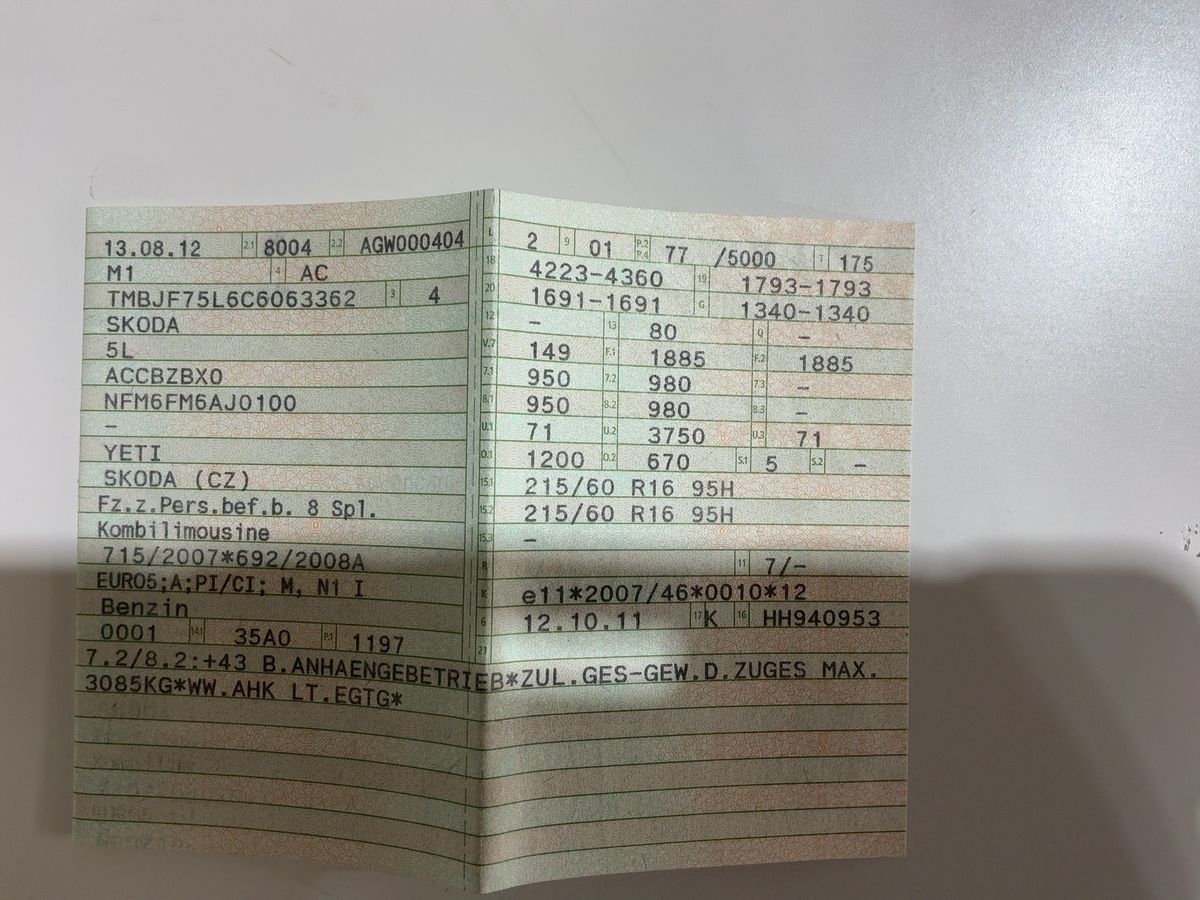 13.08.12 2.1 8004 2.2 AGW000404
M1 4 AC
TMBJF75L6C6063362 3 4
SKODA
5L
ACCBZBX0
NFM6FM6AJ0100
–
YETI
SKODA (CZ)
Fz.z.Pers.bef.b. 8 Spl.
Kombilimousine
715/2007*692/2008A
EURO5;A;PI/CI; M, N1 I
Benzin
0001 14.1 35A0 P.1 1197
L 2 9 01 P.2 P.4 77 /5000 T 175
18 4223-4360 19 1793-1793
20 1691-1691 G 1340-1340
12 – 13 80 Q –
V.7 149 F.1 1885 F.2 1885
7.1 950 7.2 980 7.3 –
8.1 950 8.2 980 8.3 –
U.1 71 U.2 3750 U.3 71
O.1 1200 O.2 670 S.1 5 S.2 –
15.1 215/60 R16 95H
15.2 215/60 R16 95H
15.3 –
R 11 7/–
K e11*2007/46*0010*12
6 12.10.11 17 K 16 HH940953
21
7.2/8.2:+43 B.ANHAENGEBETRIEB*ZUL.GES-GEW.D.ZUGES MAX.
3085KG*WW.AHK LT.EGTG*